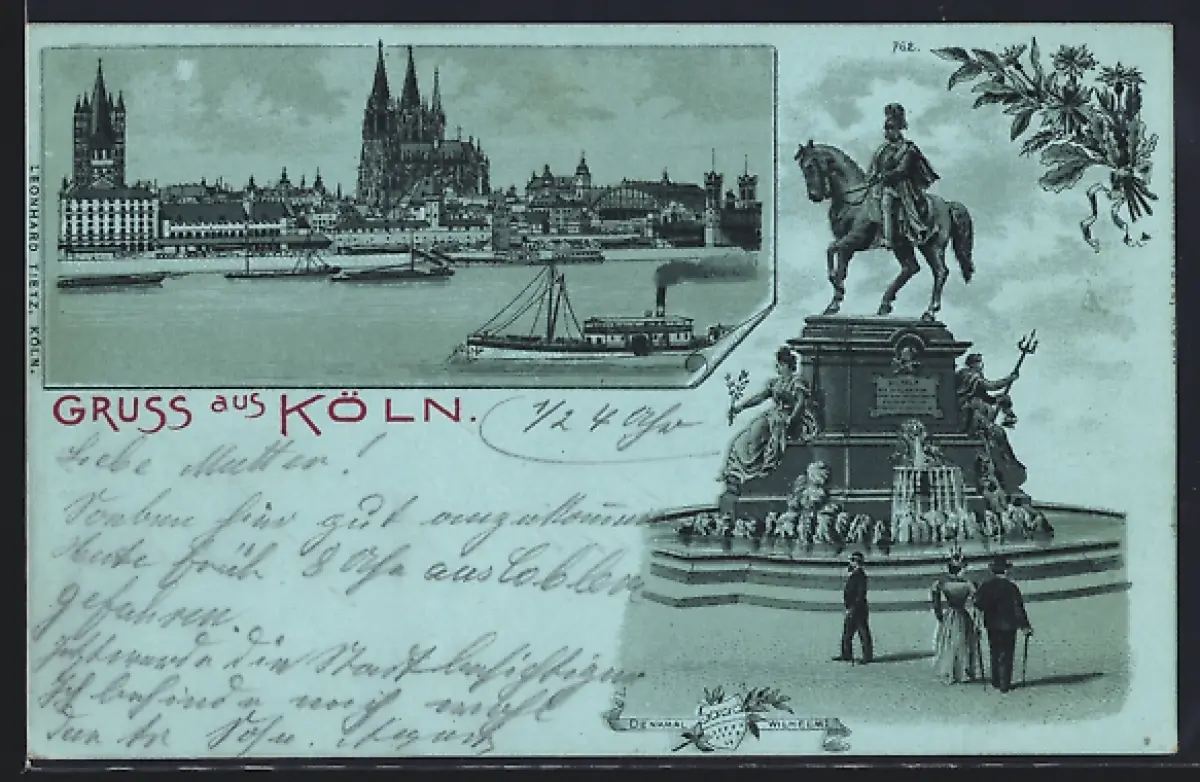 762.
LEONHARD TIETZ, KÖLN.
GRUSS aus KÖLN.
1/2 4 Uhr
Liebe Mutter!
Soeben hier gut angekommen
Heute früh 8 Uhr aus Coblenz
gefahren.
Jetzt werde die Stadt besichtigen
Ich befinde mich wohl
Dein Sohn.
DENKMAL WILHELMS